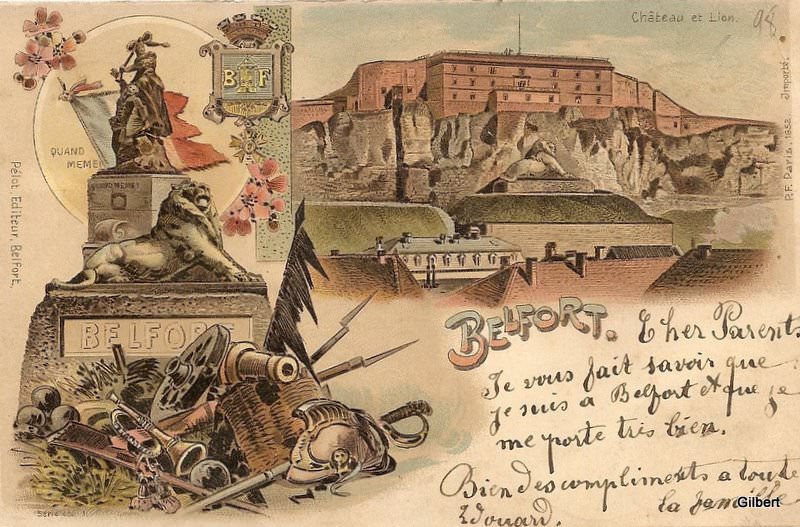 Château et Lion.
98
B F
QUAND
MEME
QUAND MEME
Pélot, Editeur, Belfort.
P.F. Paris. 1852. Importé.
BELFORT
BELFORT.
Cher Parents
Je vous fait savoir que
je suis a Belfort et que je
me porte tres bien.
Bien des compliments a toute
la famille
Edouard.
Gilbert